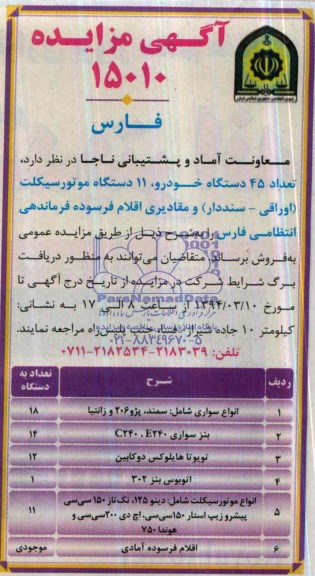 آگهی مزایده
۱۵۰۱۰
فارس
معاونت آماد و پشتیبانی ناجا در نظر دارد،
تعداد ۴۵ دستگاه خودرو، ۱۱ دستگاه موتورسیکلت
(اوراقی - سنددار) و مقادیری اقلام فرسوده فرماندهی
انتظامی فارس را به شرح ذیل از طریق مزایده عمومی
به‌فروش برساند. متقاضیان می‌توانند به منظور دریافت
برگ شرایط شرکت در مزایده از تاریخ درج آگهی تا
مورخ ۱۳۹۴/۰۳/۱۰ از ساعت ۸ الی ۱۷ به نشانی:
کیلومتر ۱۰ جاده شیراز جنب پلیس‌راه مراجعه نمایند.
تلفن: ۲۱۸۳۰۳۹-۲۱۸۲۵۳۴-۰۷۱۱
ParsNamadData
۰۲۱-۸۸۳۴۹۶۷۰-۵
ردیف شرح تعداد به دستگاه
۱ انواع سواری شامل: سمند، پژو۲۰۶ و زانتیا ۱۸
۲ بنز سواری C۲۴۰ ، E۲۴۰ ۱۴
۳ تویوتا هایلوکس دوکابین ۱۲
۴ اتوبوس بنز ۳۰۲ ۱
۵ انواع موتورسیکلت شامل: دینو ۱۲۵، تک‌تاز ۱۵۰ سی‌سی
پیشرو زیپ استار ۱۵۰سی‌سی، اچ دی ۲۰۰سی‌سی و
هوندا ۷۵۰ ۱۱
۶ اقلام فرسوده آمادی موجودی